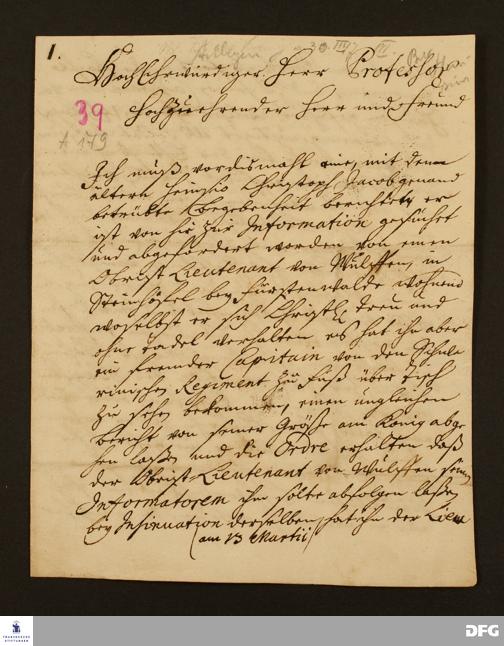 1.
HochEhrwürdiger Herr Professor
39
Hochzuehrender Herr und Freund
A 179
Ich muß vordismahl eine, mit dem
ältern Heinsio Christoph Jacob genand
betrübte Begebenheit berichten, er
ist von hir zur Information gesuchet
und abgefordert worden von einen
Obrist Lieutenant von Wulffen, in
Steinhöfel bey Fürstenwalde wohnend
woselbst er sich Christl. treu und
ohne tadel verhalten es hat ihn aber
ein fremder Capitain von den Schwe
rinischen Regiment zu Fuß über tisch
zu sehen bekommen, einen ungleichen
bericht von seiner Größe am König abge
hen laßen und die Ordre erhalten daß
der Obrist-Lieutenant von Wulffen seinen
Informatorem ihm solte abfolgen laßen
bey Insinuation derselben, hat ihn der Lieu
(am 13 Martii)
FRANCKESCHE STIFTUNGEN
DFG